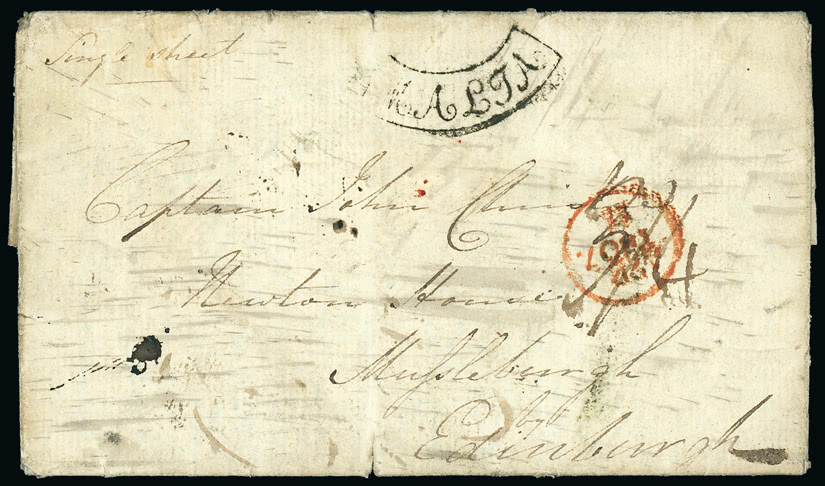 Single sheet
MALTA
Captain John Christie
Newton House
Mussleburgh
by
Edinburgh